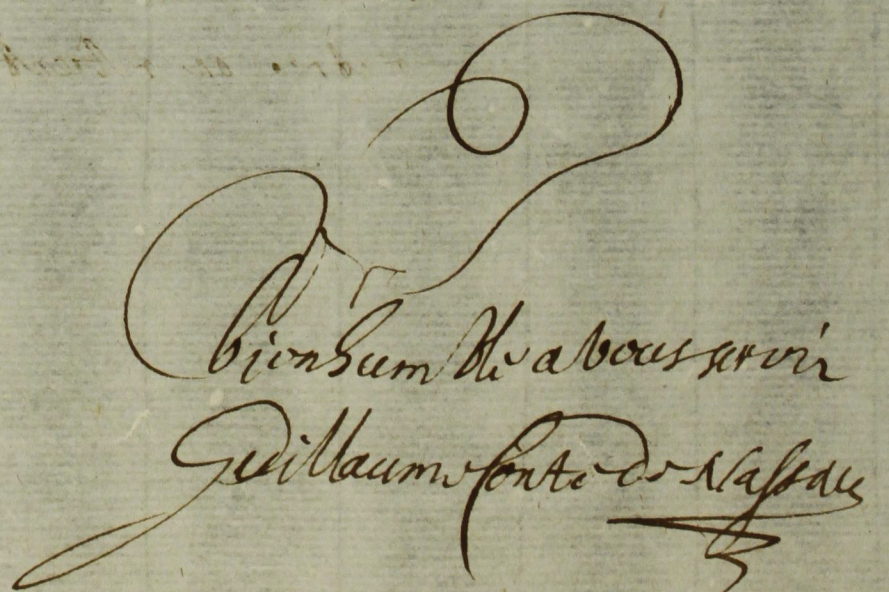 bien humble a vous servir
Guillaume Conte de Nassau